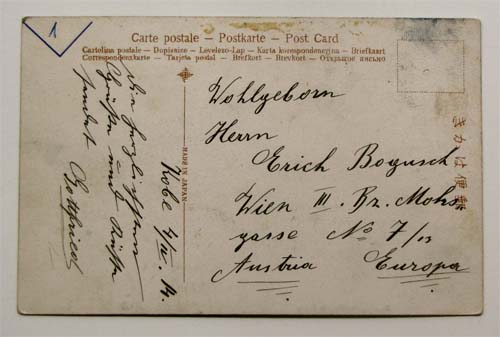 1
Carte postale – Postkarte – Post Card
Cartolina postale – Dopisnice – Levelezo-Lap – Karta korespondencyjna – Briefkaart
Correspondenzkarte – Tarjeta postal – Brefkort – Brevkort – Открытое письмо
Die herzlichsten
Grüße und Küsse
sendet
Gottfried
Kobe 4/IV. 14.
MADE IN JAPAN
Wohlgeborn
Herrn
Erich Bogusch
Wien III. Bz. Mohs
gasse No 7/13
Austria Europa
きかは便郵